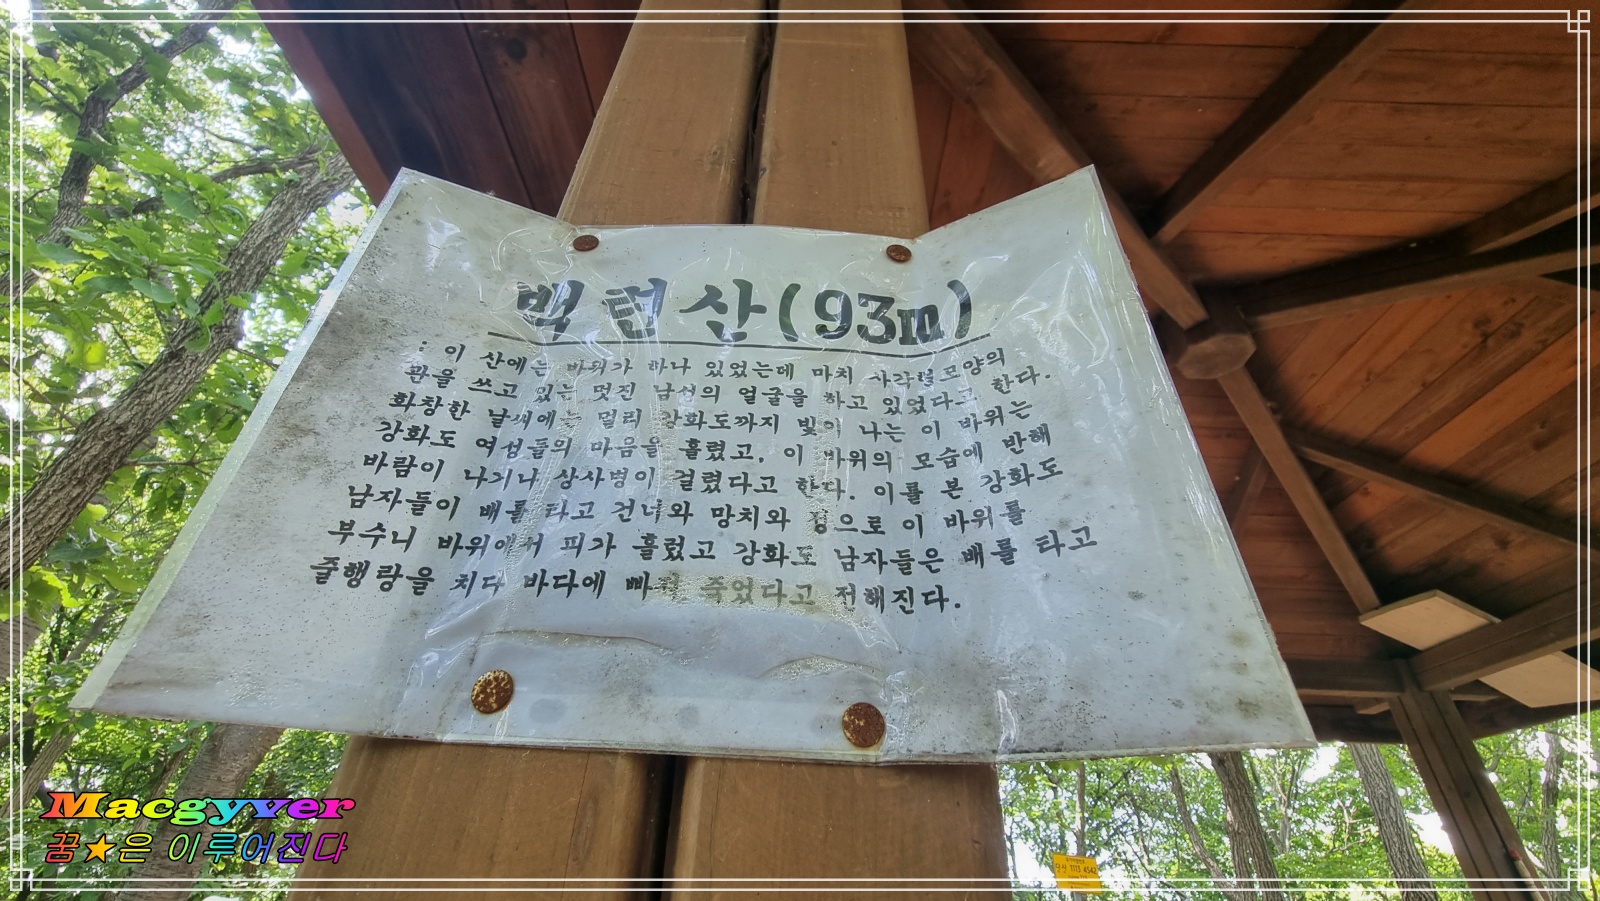 백련산(93m)
: 이 산에는 바위가 하나 있었는데 마치 사각형모양의
관을 쓰고 있는 멋진 남성의 얼굴을 하고 있었다고 한다.
화창한 날씨에는 멀리 강화도까지 빛이 나는 이 바위는
강화도 여성들의 마음을 흘렸고, 이 바위의 모습에 반해
바람이 나거나 상사병이 걸렸다고 한다. 이를 본 강화도
남자들이 배를 타고 건너와 망치와 정으로 이 바위를
부수니 바위에서 피가 흘렀고 강화도 남자들은 배를 타고
줄행랑을 치다 바다에 빠져 죽었다고 전해진다.
Macgyver
꿈★은 이루어진다